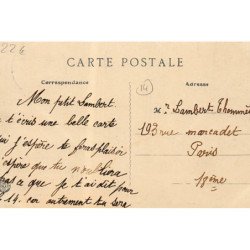 226
CARTE POSTALE
Correspondance
Adresse
14
Mon p'tit Lambert.
t'écris une belle carte
j'espère te feras plaisir
espère que tu
ce que je t'ai dit pour
14. car autrement tu sera
Mr Lambert
193 rue marcadet
Paris
18ème